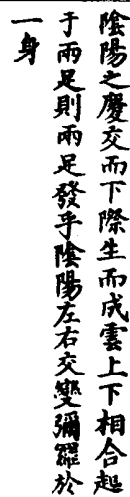 陰陽之慶交而下際生而成雲上下相合起
于兩足則兩足發乎陰陽左右交變彌羅於
一身